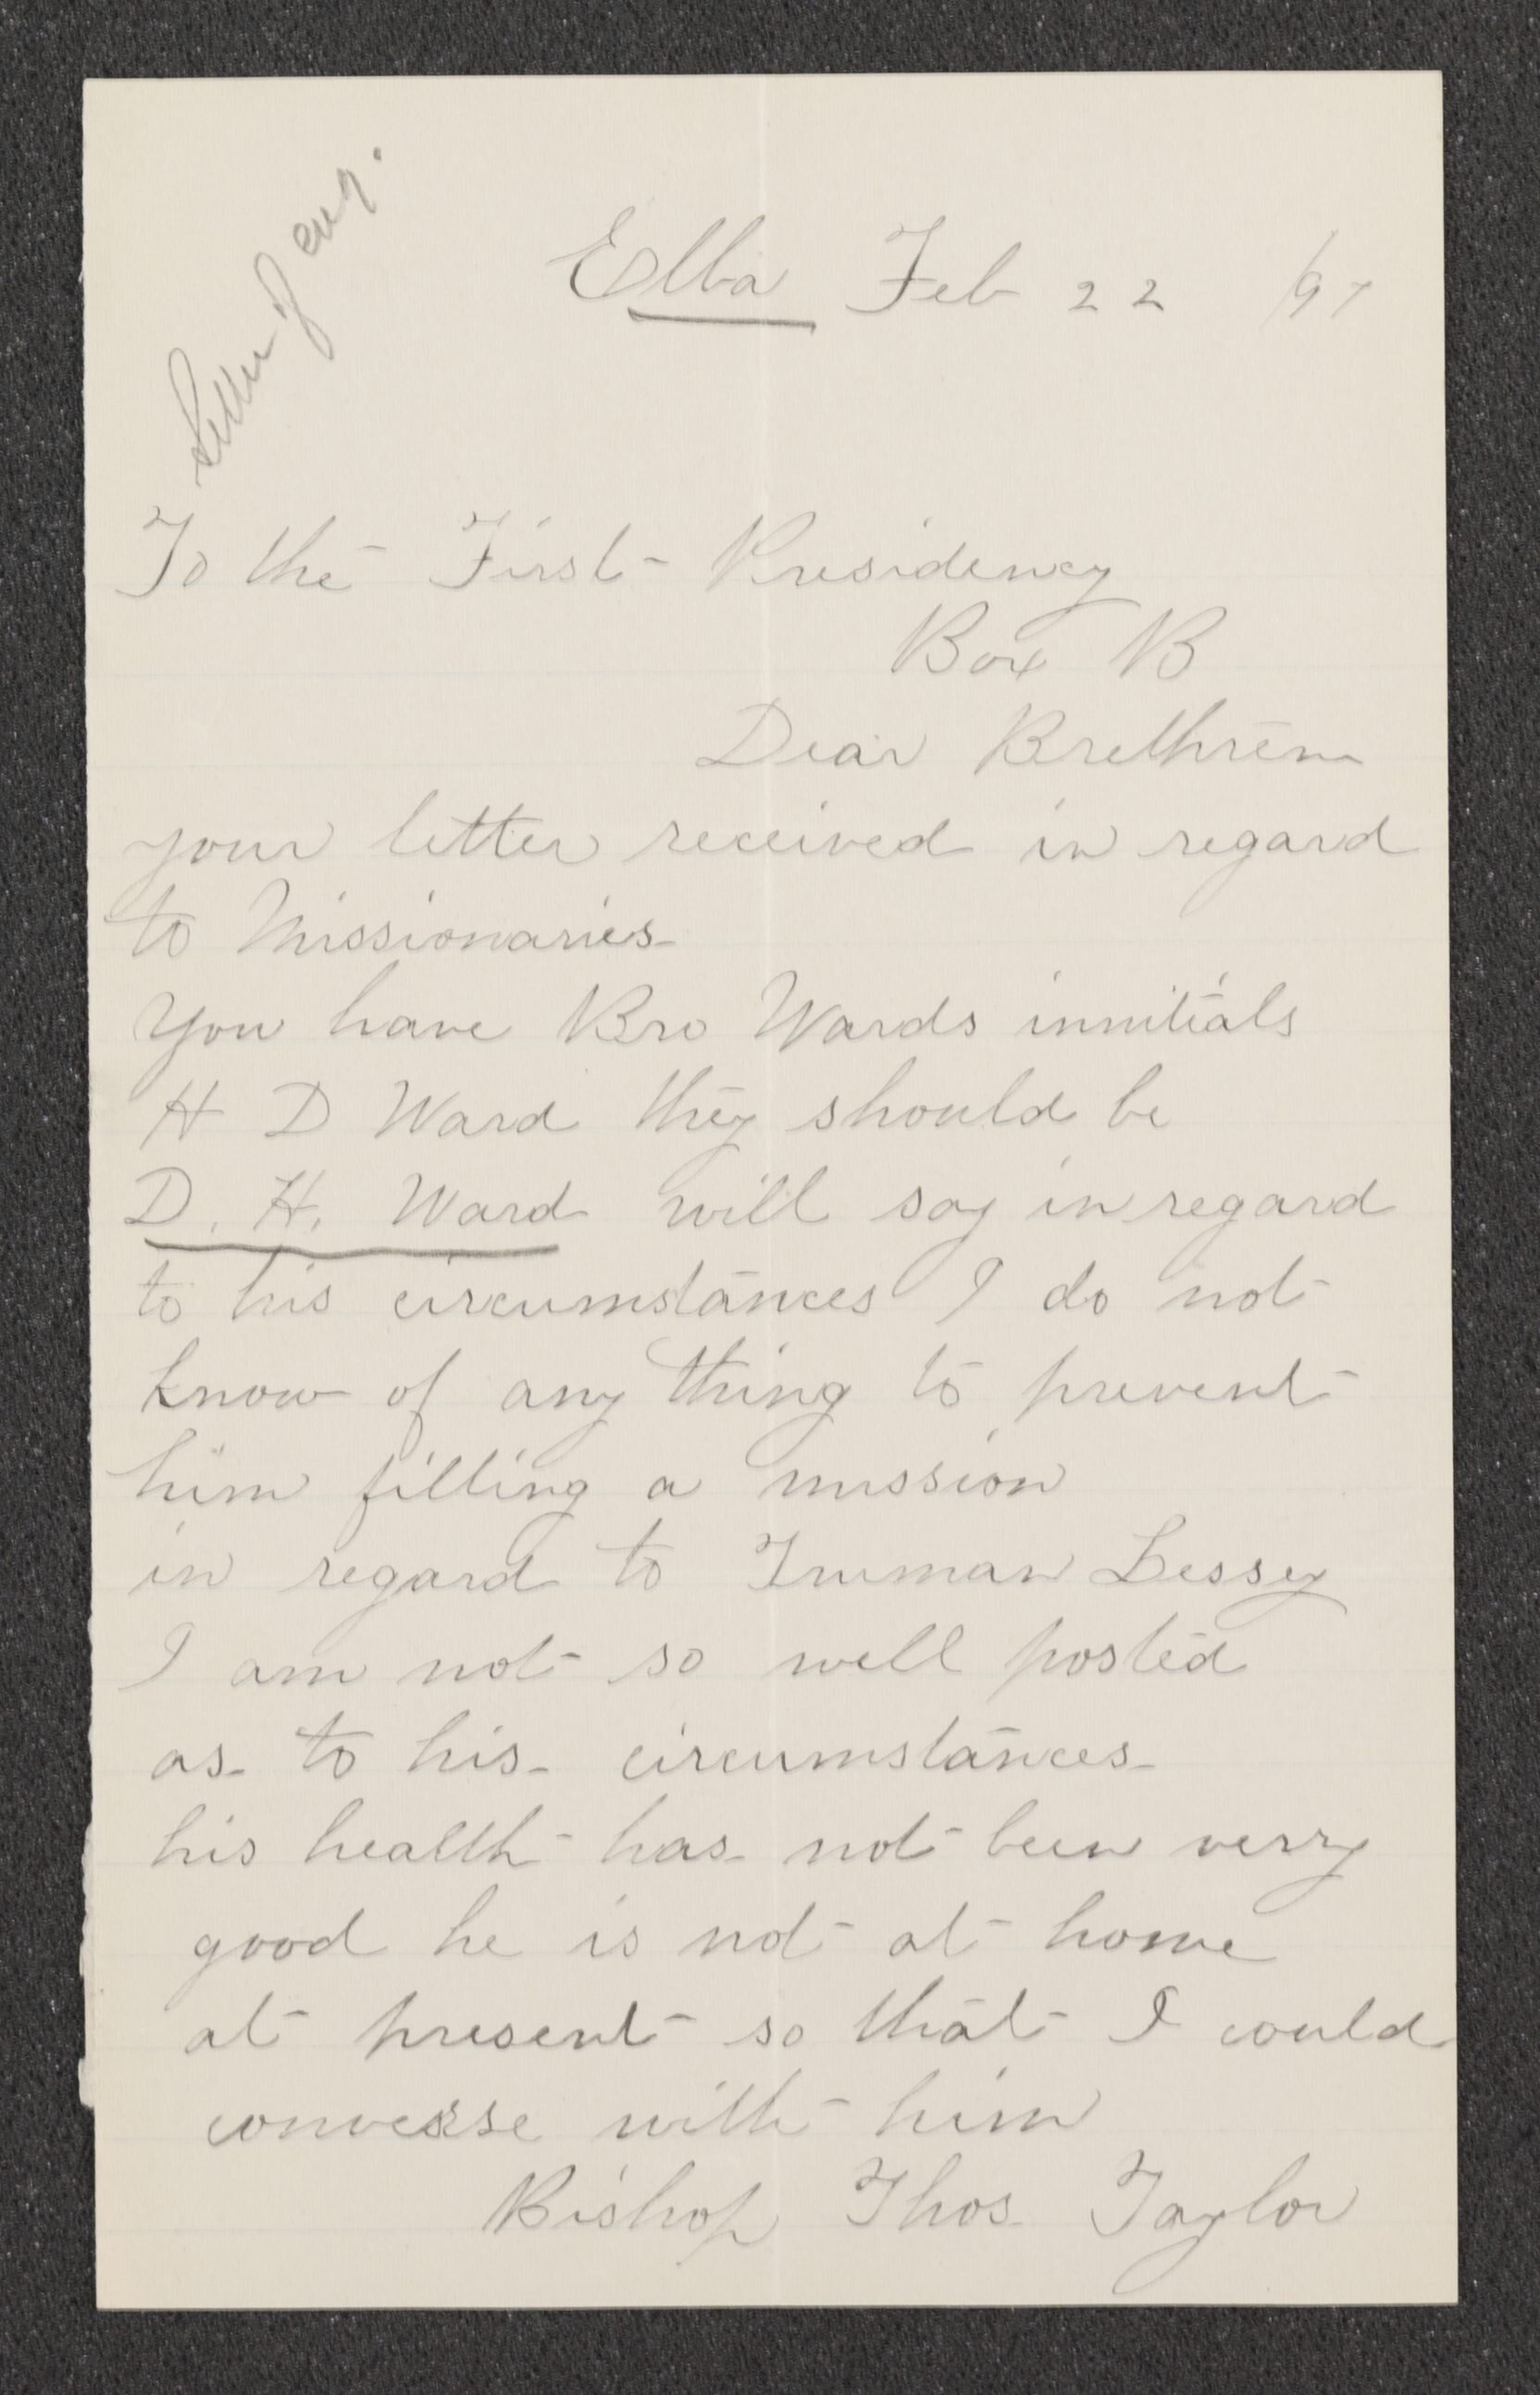 Letter of enq.
Elba Feb 22 /97
To the First Presidency
Box B
Dear Brethren
your letter received in regard
to Missionaries
You have Bro Wards innitials
H D Ward they should be
D. H. Ward will say in regard
to his circumstances I do not
know of any thing to prevent
him filling a mission
in regard to Truman Dessey
I am not so well posted
as to his circumstances
his health has not been verry
good he is not at home
at present so that I could
converse with him
Bishop Thos Taylor